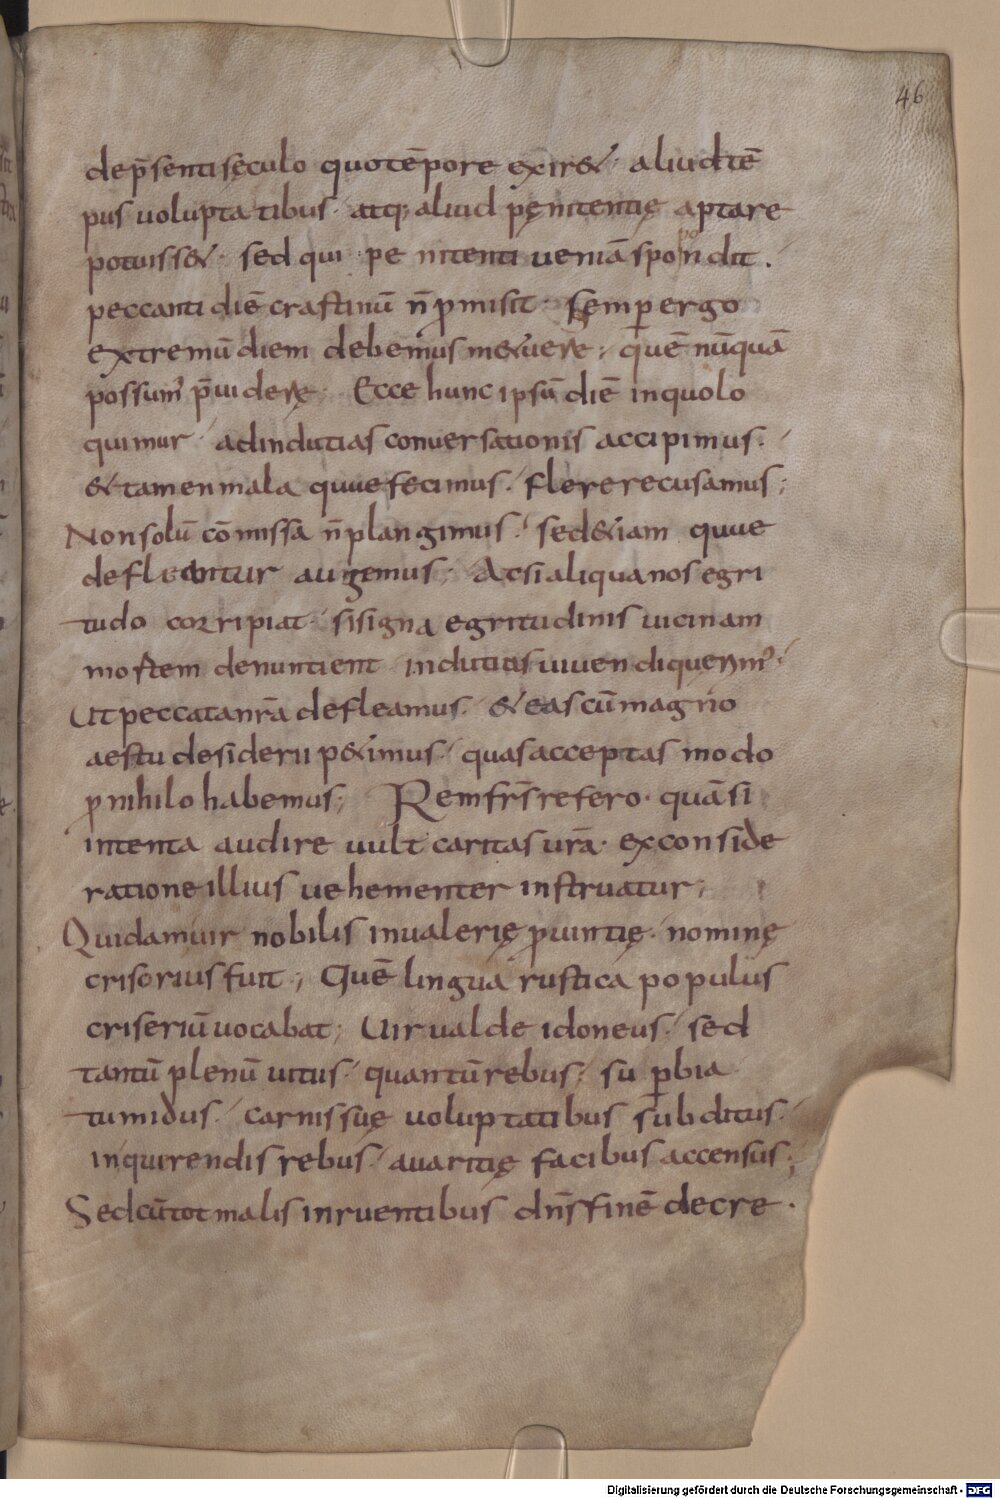 46
dep̄sentisęculo quotēpore exir& · aliudtē
pus uoluptatibus · atq; aliud pęnitentię aptare
potuiss& · sed qui penitenti ueniā spondit .
peccanti diē crastinū n̄ p̄misit · semper ergo
extremū diem debemus m&uere ; quē nūquā
possum' p̄uidere ; Ecce hunc ipsū diē inquolo
quimur · adindutias conuersationis accipimus ·
& tamen mala quue fecimus · flere recusamus ;
Non solū cōmissa n̄ plangimus · sed&iam quue
defleantur augemus ; Acsi aliqua nos egri
tudo corripiat · si signa egritudinis uicinam
mortem denuntient · indutias uiuendi querim' ·
Ut peccata nr̄a defleamus · & eas cū magno
aestu desiderii p&imus · quas acceptas modo
p̄ nihilo habemus ; Rem frs̄ refero · quā si
intenta audire uult caritas ur̄a · exconside
ratione illius uehementer instruatur ;
Quidam uir nobilis inualerię p̄uintię · nominę
crisorius fuit ; Quē lingua rustica populus
criseriū uocabat ; Uir ualde idoneus · sed
tantū plenū uitiis · quantū rebus ; sup̱bia
tumidus · carnis suę uoluptatibus subditus ·
inquirendis rebus · auaritię facibus accensus ;
Sed cū tot malis inruentibus dn̄s finē decre ·
Digitalisierung gefördert durch die Deutsche Forschungsgemeinschaft - DFG